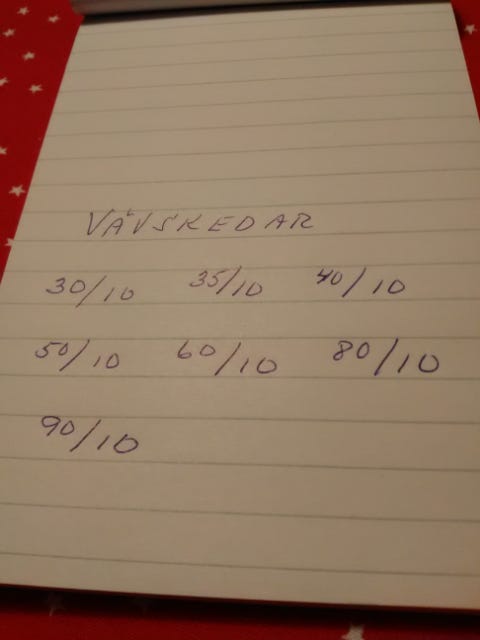 VÄVSKEDAR
30/10 35/10 40/10
50/10 60/10 80/10
90/10